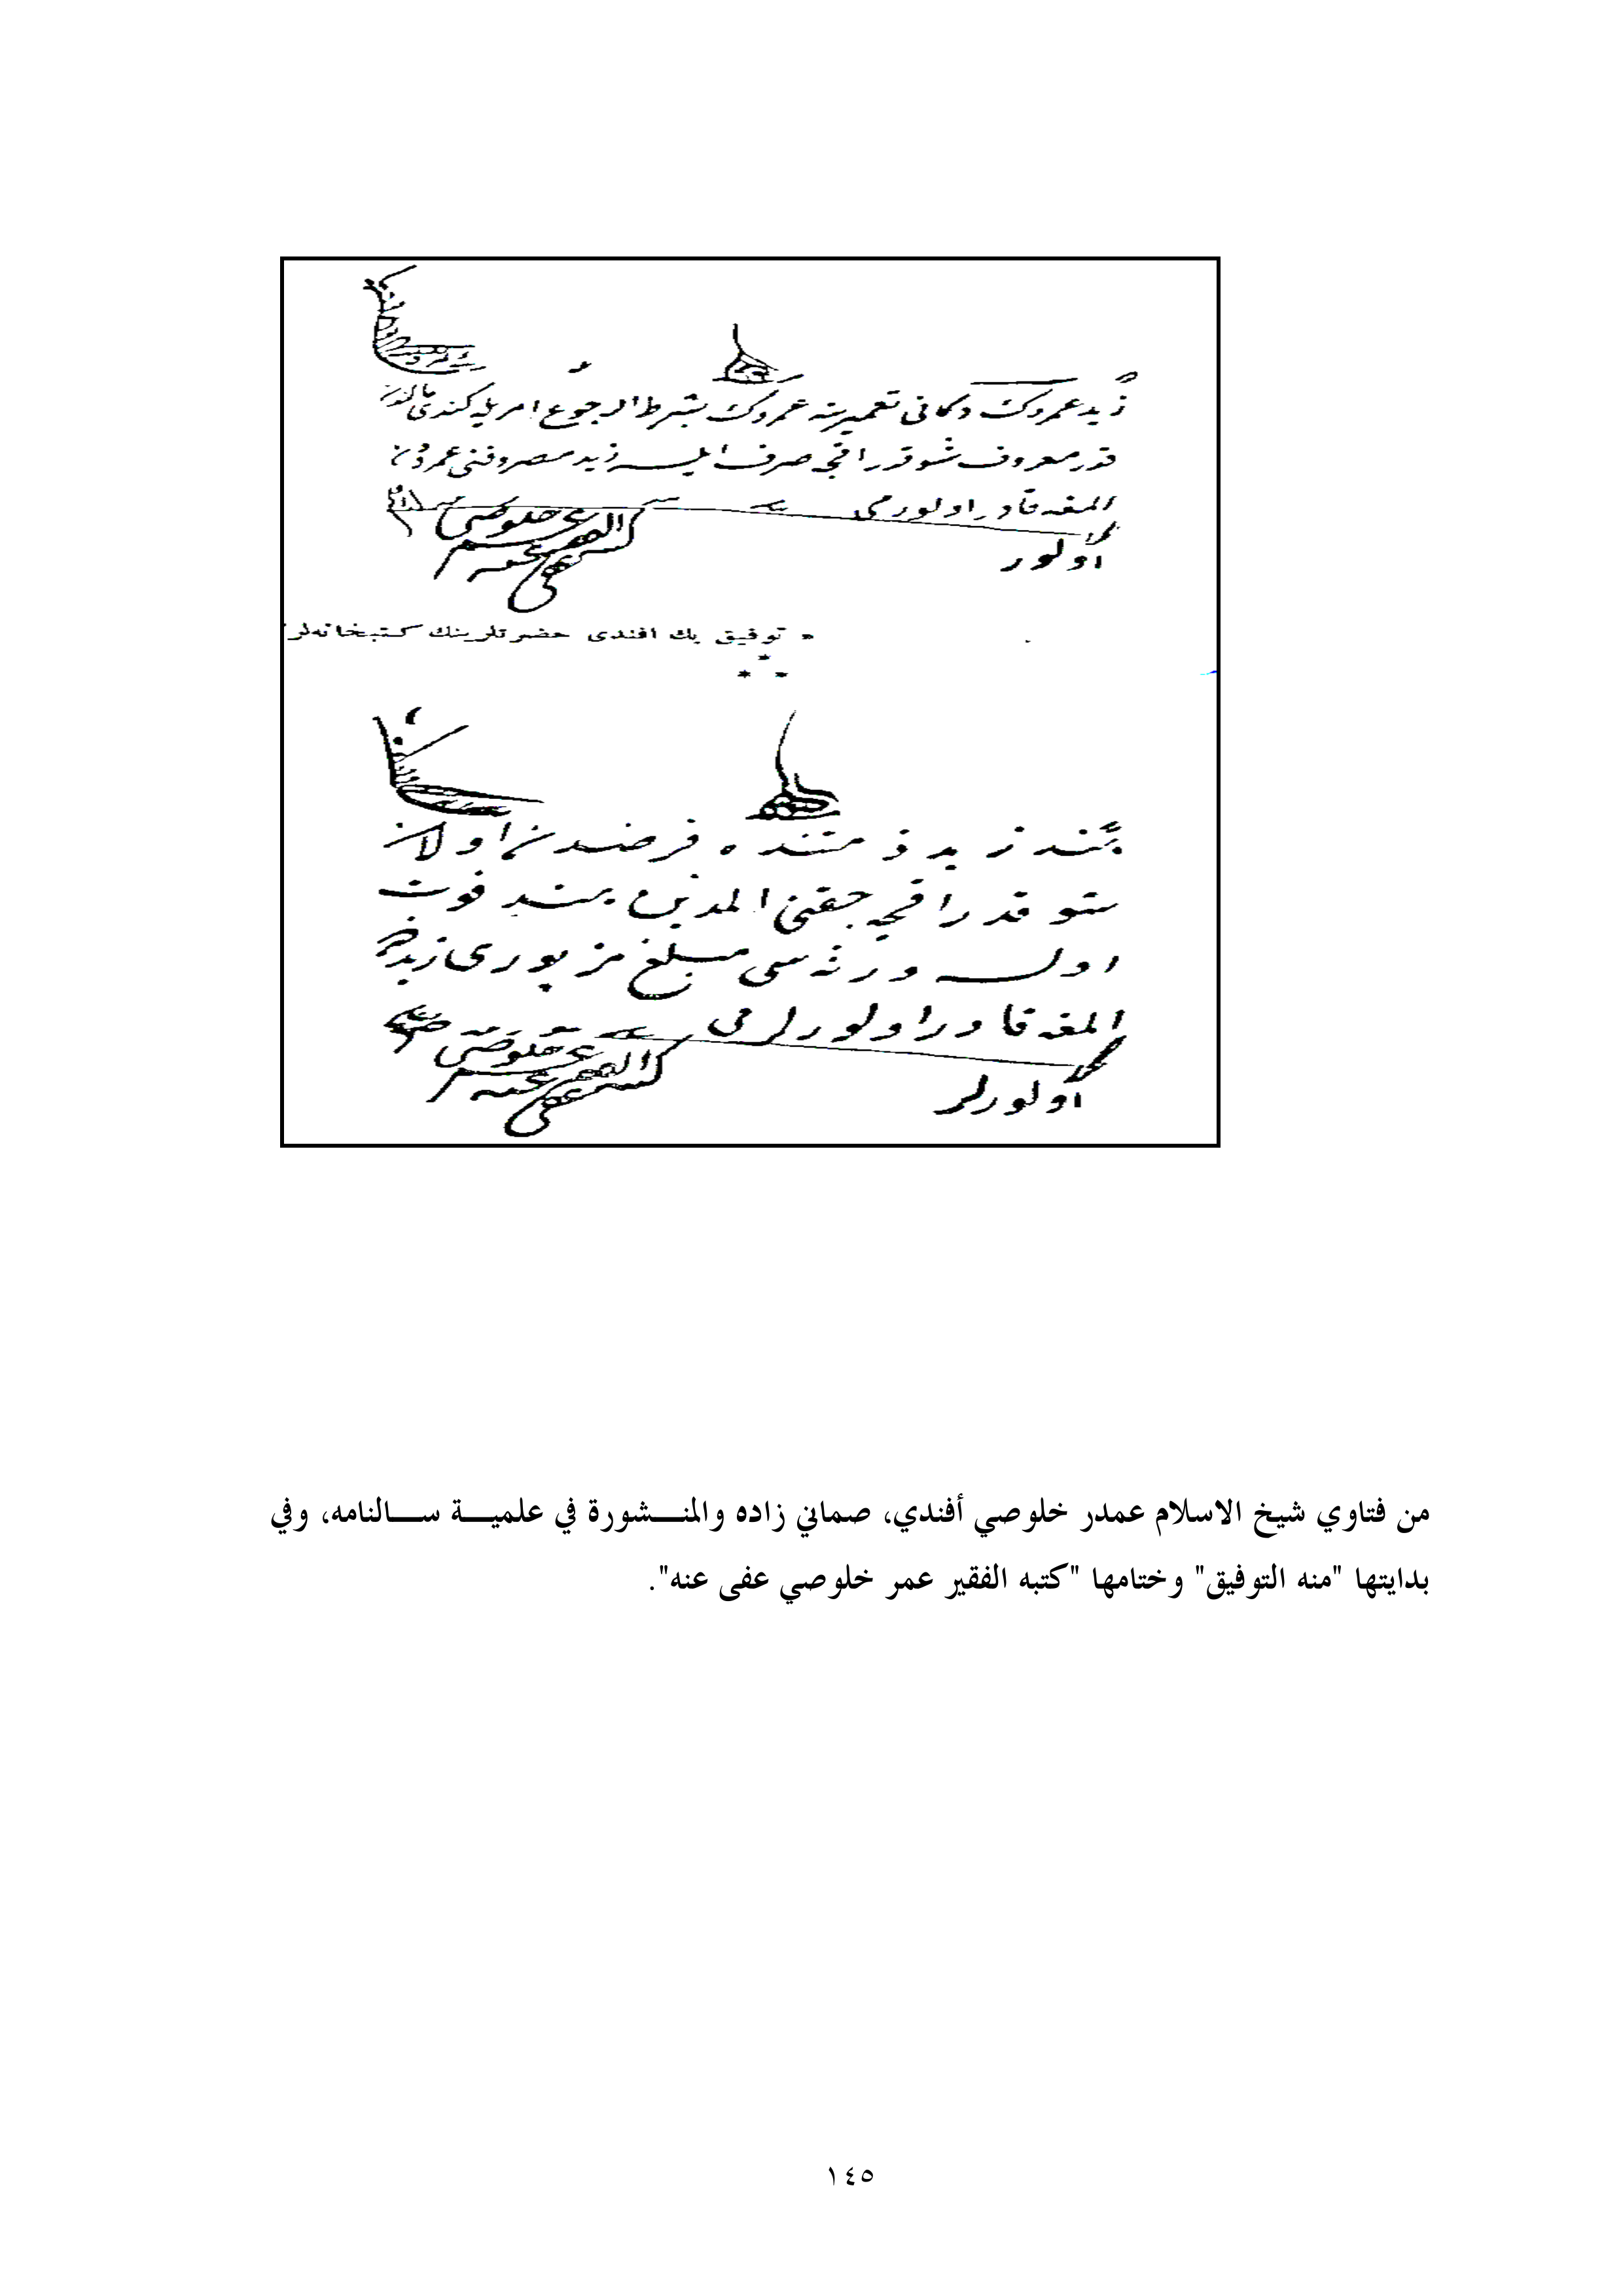 زيد عمروك دكانى تعميرينه عمروك بشرط الرجوع امريله كندى مالندن
قدر معروف شوقدر اقچه صرف ايلسه زيد مصروفنى عمرودن
المغه قادر اولورمى
اولور
كتبه الفقير عمر خلوصى عفى عنه
* توفيق بك افندى حضرتلرينك كتبخانه‌لر
* * *
هند زيد ذمتنده قرضدن اولان
شو قدر اقچه حقنى المدين هند فوت
اولسه ورثه‌سى مبلغ مزبورى زيددن
المغه قادر اولورلرمى
اولورلر
كتبه الفقير عمر خلوصى عفى عنه
من فتاوي شيخ الاسلام عمدر خلوصي أفندي، صماني زاده والمنشورة في علمية سالنامه، وفي
بدايتها "منه التوفيق" وختامها "كتبه الفقير عمر خلوصي عفى عنه".
١٤٥